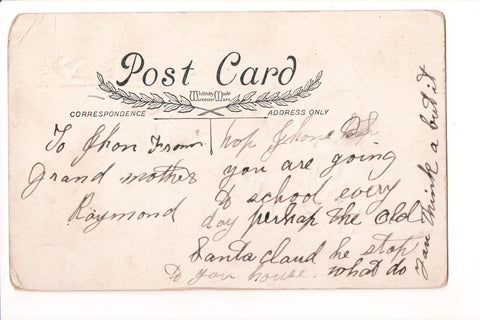 Post Card
Whitney Made
Worcester Mass
CORRESPONDENCE
ADDRESS ONLY
To Jhon From
Grand mother
Raymond
hop Jhon
you are going
to school every
day perhap the Old
Santa claud he stop
to you house. what do
you think a but it